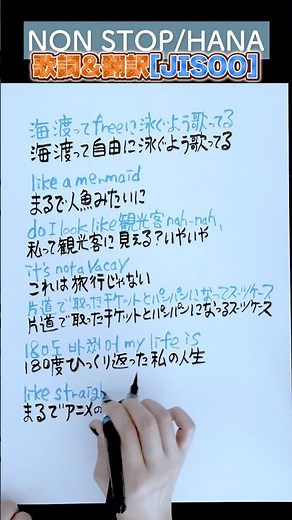 NON STOP/HANA
歌詞&翻訳[JISOO]
海渡ってfreeに泳ぐよう歌ってる
海渡って自由に泳ぐよう歌ってる
like a mermaid
まるで人魚みたいに
do I look like 観光客 nah-nah,
私って観光客に見える?いやいや
it's not a vacay
これは旅行じゃない
片道で取ったチケットとパンパンになってるスーツケース
片道で取ったチケットとパンパンになってるスーツケース
180도 바꼈어 my life is
180度ひっくり返った私の人生
like straigh
まるでアニメの